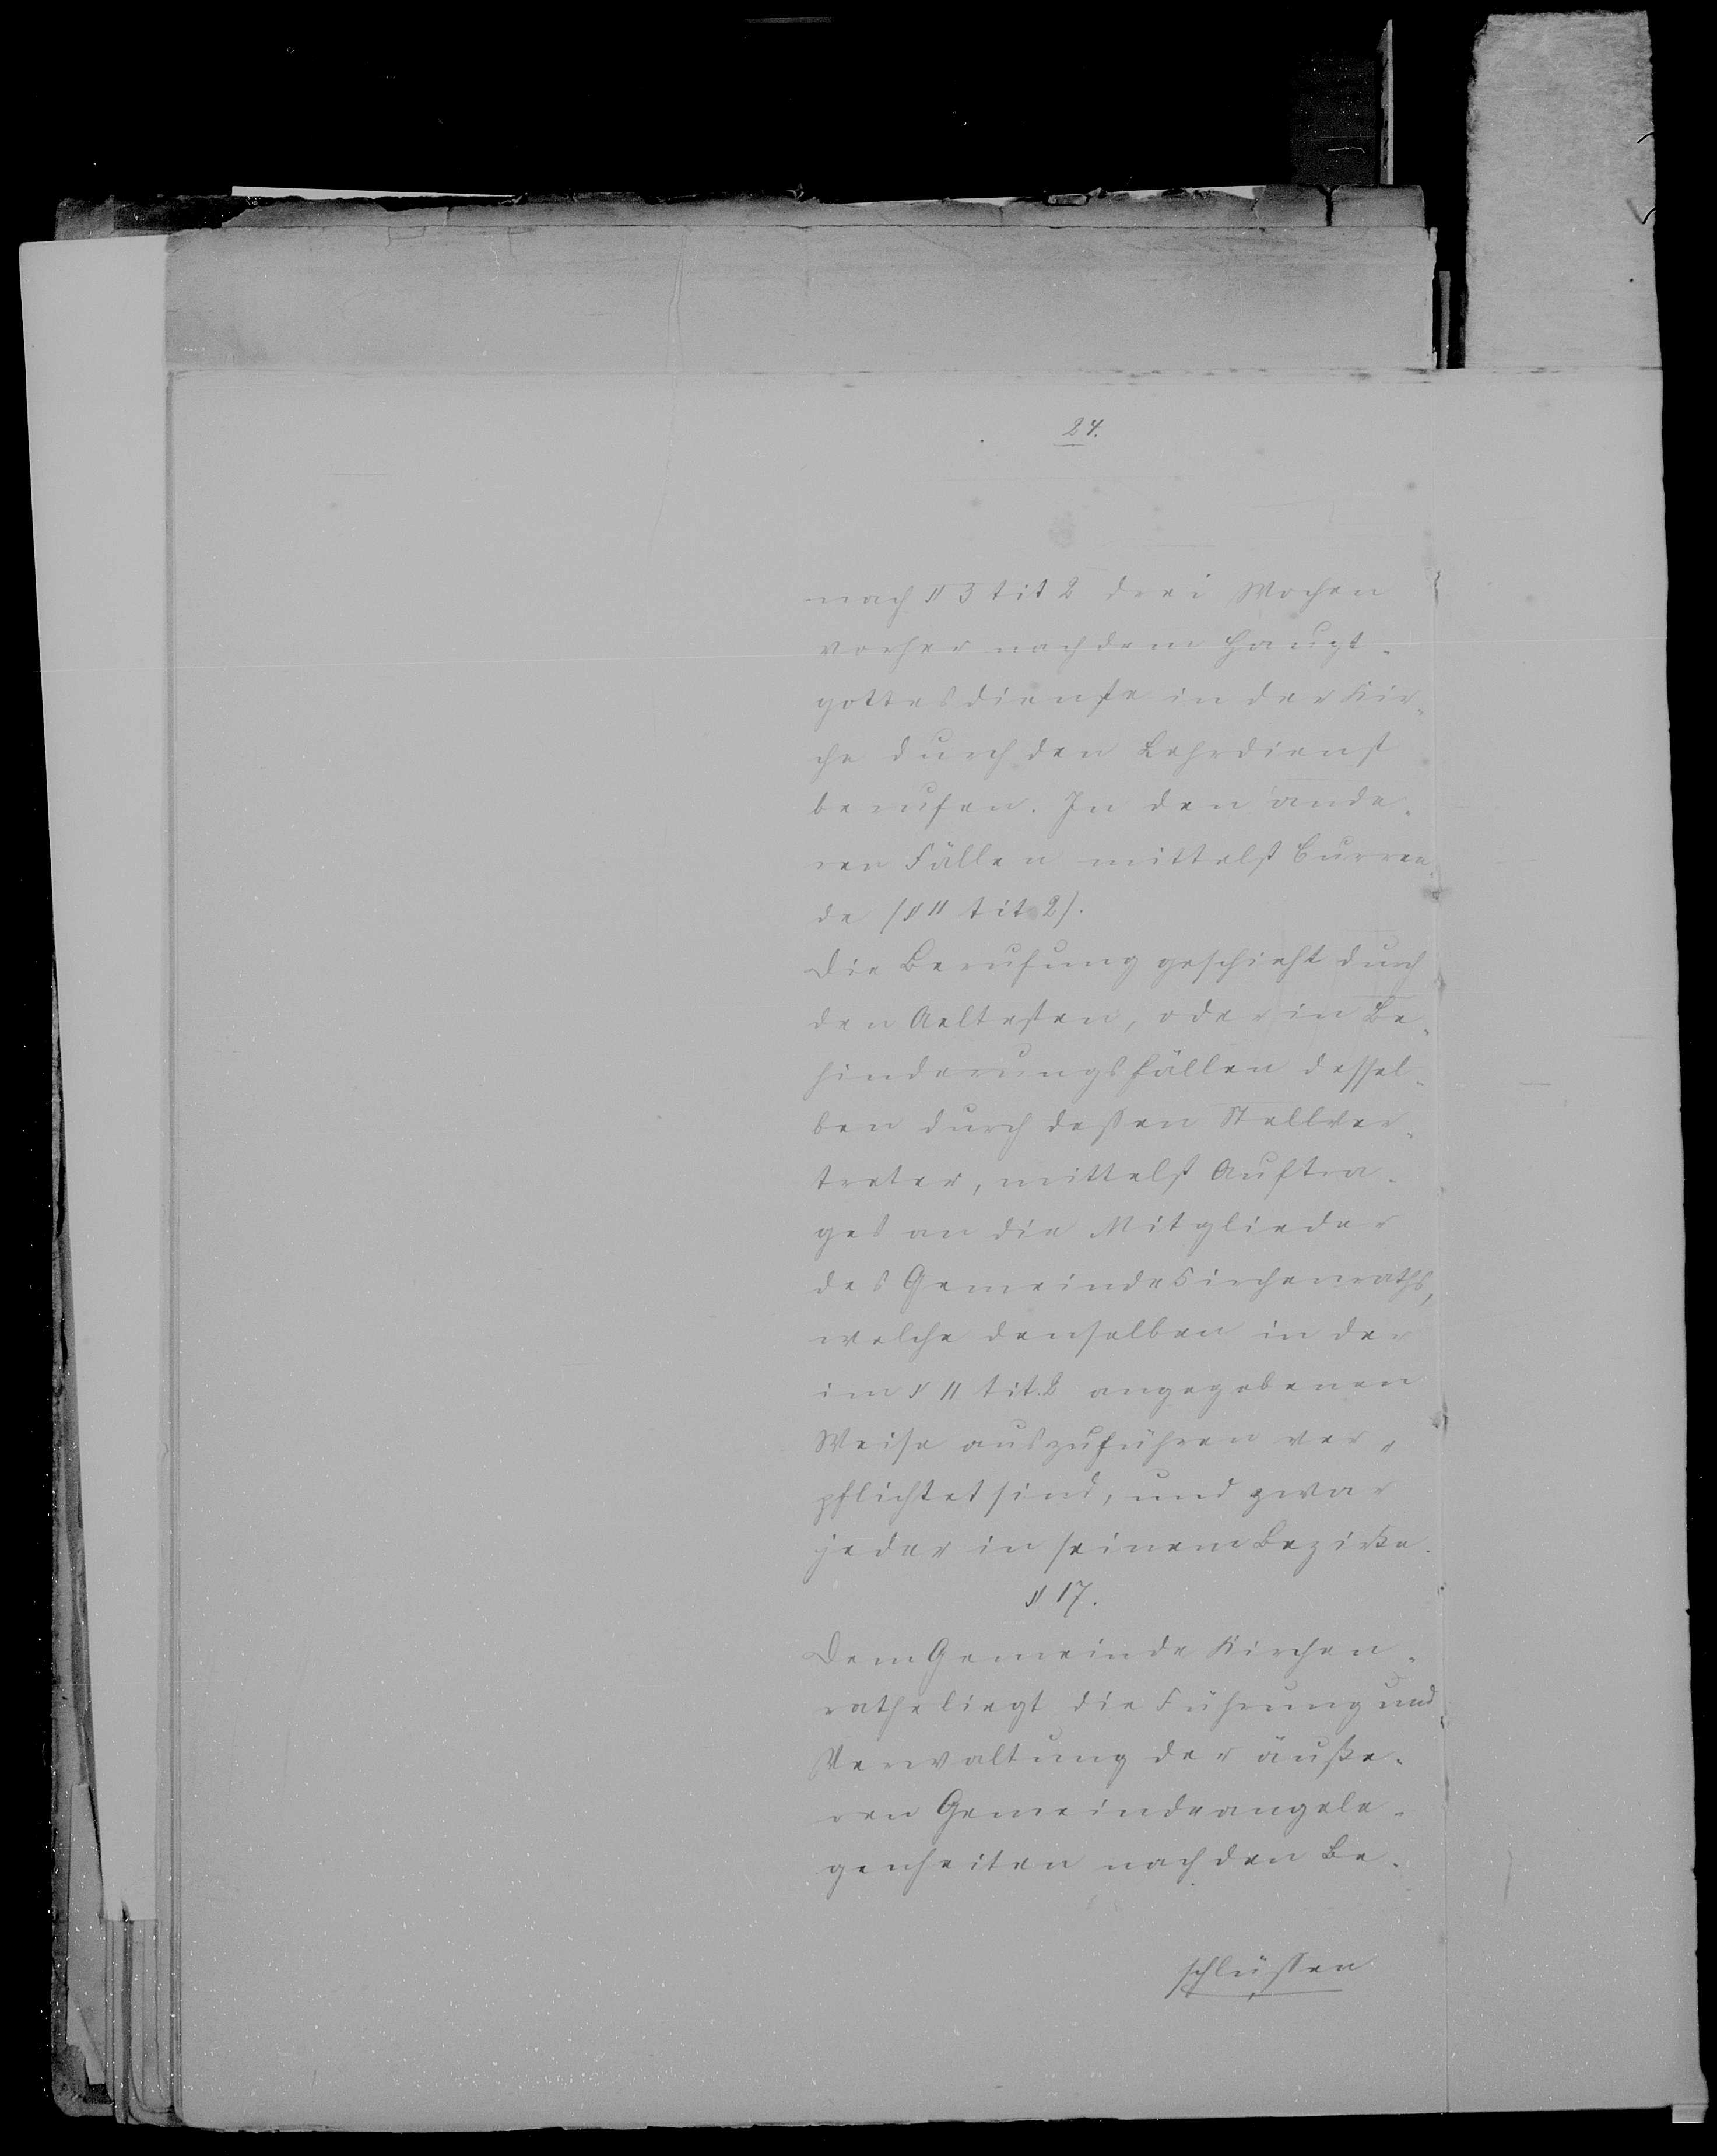 24.
nach § 3 tit 2 drei Wochen
vorher nach dem Haupt-
gottesdienste in der Kir-
che durch den Lehrdienst
berufen. In den ande-
ren Fällen mittelst Curren-
de (§ 11 tit 2).
Die Berufung geschieht durch
den Aeltesten, oder in Be-
hinderungsfällen dessel-
ben durch deßen Stellver-
treter, mittelst Auftra-
ges an die Mitglieder
des Gemeindekirchenraths,
welche denselben in der
im § 11 tit. 2 angegebenen
Weise auszuführen ver-
pflichtet sind, und zwar
jeder in seinem Bezirke.
§ 17.
Dem Gemeinde Kirchen-
rathe liegt die Führung und
Verwaltung der äuße-
ren Gemeindeangele-
genheiten nach den Be-
schlüssen